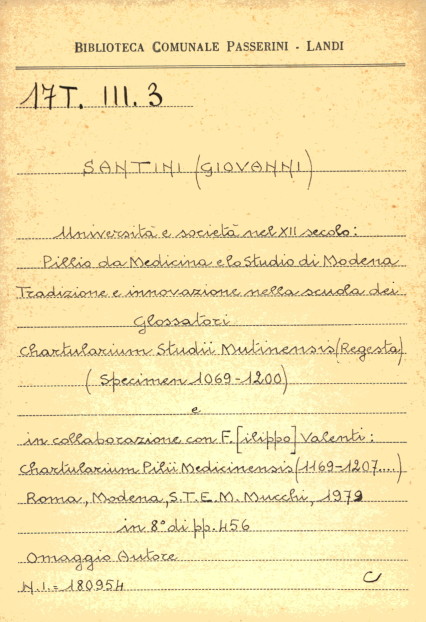 BIBLIOTECA COMUNALE PASSERINI - LANDI
17T. III. 3
SANTINI (GIOVANNI)
Università e società nel XII secolo:
Pillio da Medicina e lo Studio di Modena
Tradizione e innovazione nella scuola dei
Glossatori
Chartularium Studii Mutinensis (Regesta)
(Specimen 1069-1200)
e
in collaborazione con F.[ilippo] Valenti:
Chartularium Pilii Medicinensis (1169-1207....)
Roma, Modena, S.T.E.M. Mucchi, 1979
in 8° di pp. 456
Omaggio Autore
N.I.= 180954
C